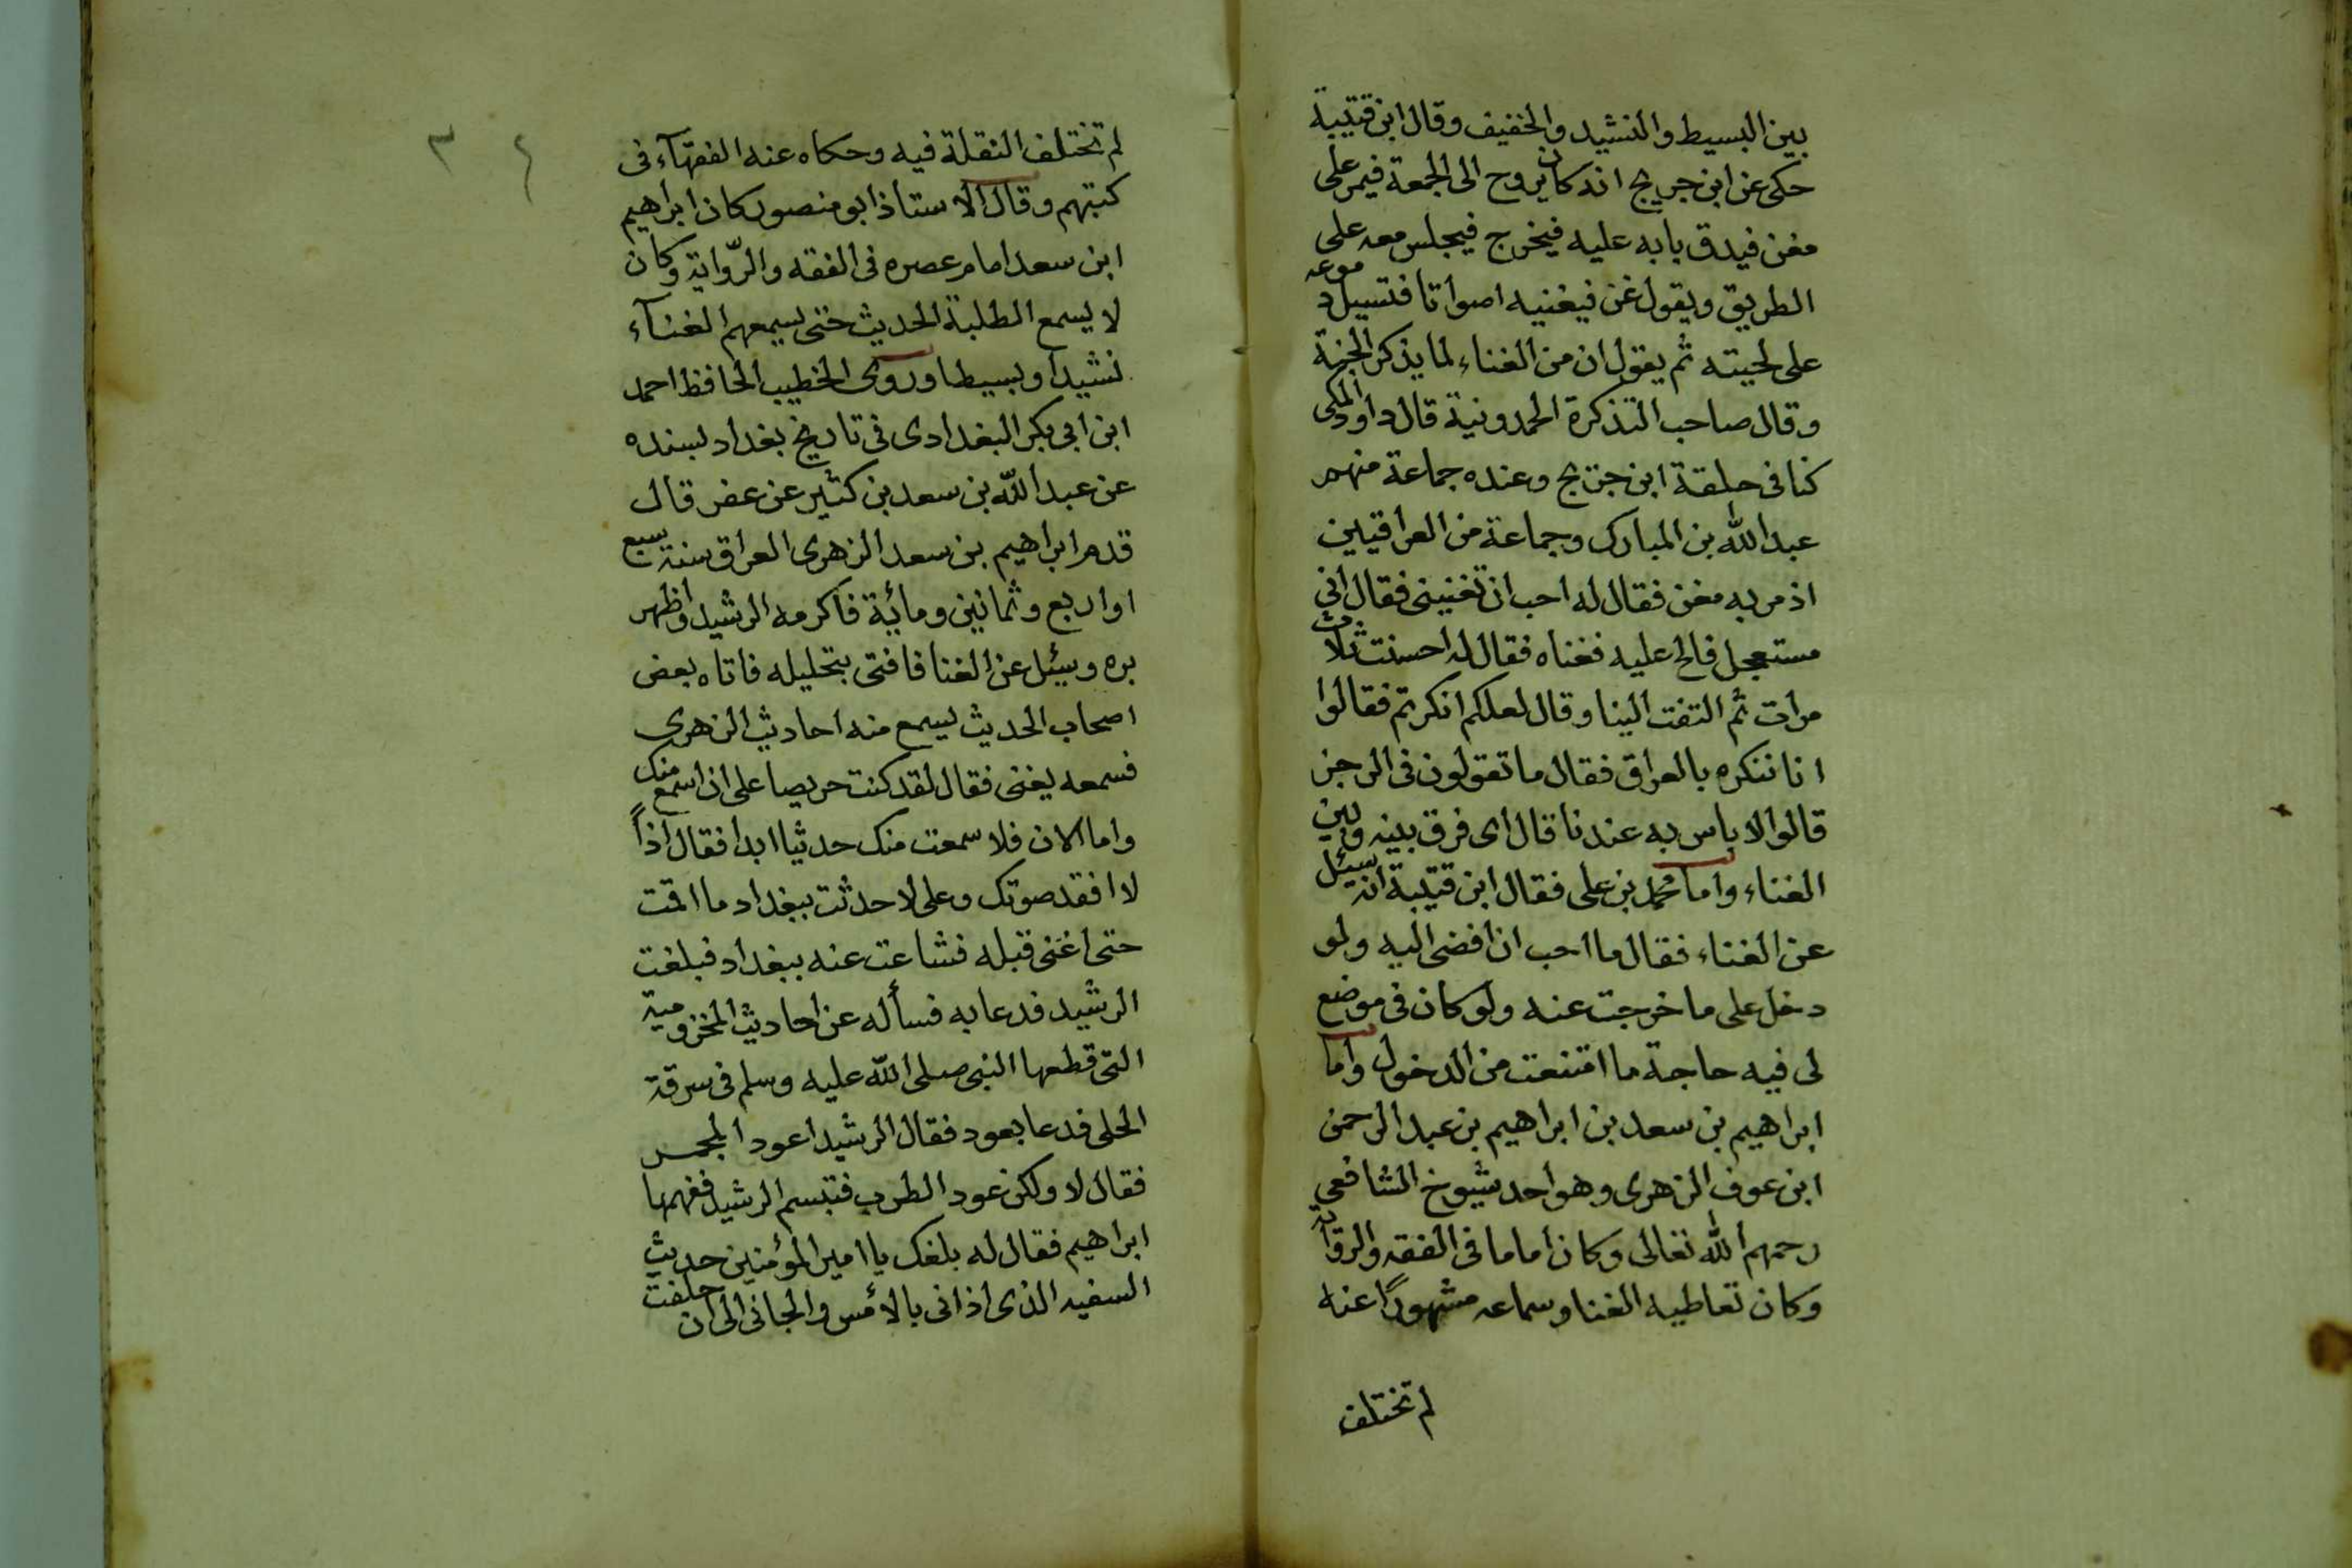 بين البسيط والنشيد والخفيف وقال ابن قتيبة
حكى عن ابن جريج انه كان يروح الى الجمعة فيمر على
مغن فيدق بابه عليه فيخرج فيجلس معه على
الطريق ويقول غن فيغنيه اصواتا فتسيل دموعه
على لحيته ثم يقول ان من الغناء لما يذكر الجنة
وقال صاحب التذكرة الحمدونية قال داود المكى
كنا فى حلقة ابن جريج وعنده جماعة منهم
عبد الله بن المبارك وجماعة من العراقيين
اذ مر به مغن فقال له احب ان تغنينى فقال انى
مستعجل فالح عليه فغناه فقال له احسنت ثلاث
مرات ثم التفت الينا وقال لعلكم انكرتم فقالوا
انا ننكره بالعراق فقال ما تقولون فى الرجز
قالوا لا باس به عندنا قال اى فرق بينه وبين
الغناء واما محمد بن على فقال ابن قتيبة انه سئل
عن الغناء فقال ما احب ان افضى اليه ولو
دخل على ما خرجت عنه ولو كان فى موضع
لى فيه حاجة ما امتنعت من الدخول واما
ابراهيم بن سعد بن ابراهيم بن عبد الرحمن
ابن عوف الزهرى وهو احد شيوخ الشافعى
رحمهم الله تعالى وكان اماما فى الفقه والرواية
وكان تعاطيه الغنا وسماعه مشهورًا عنه
لم تختلف
٣ ٤
لم تختلف النقلة فيه وحكاه عنه الفقهآء فى
كتبهم وقال الاستاذ ابو منصور كان ابراهيم
ابن سعد امام عصره فى الفقه والرّواية وكان
لا يسمع الطلبة الحديث حتى يسمعهم الغنآء
نشيدا وبسيطا وروى الخطيب الحافظ احمد
ابن ابى بكر البغدادى فى تاريخ بغداد بسنده
عن عبد الله بن سعد بن كثير عن عفر قال
قدم ابراهيم بن سعد الزهرى العراق سنة سبع
او اربع وثمانين ومائة فاكرمه الرشيد واظهر
بره وسئل عن الغنا فافتى بتحليله فاتاه بعض
اصحاب الحديث ليسمع منه احاديث الزهرى
فسمعه يغنى فقال لقد كنت حريصا على ان اسمع منك
واما الان فلا سمعت منك حديثا ابدا فقال اذاً
لا افقد صوتك وعلى لا حدثت ببغداد ما اقمت
حتى اغنى قبله فشاعت عنه ببغداد فبلغت
الرشيد فدعا به فسأله عن احاديث المخزومية
التى قطعها النبى صلى الله عليه وسلم فى سرقة
الحلى فدعا بعود فقال الرشيد اعود المجمر
فقال لا ولكن عود الطرب فتبسم الرشيد ففهمها
ابراهيم فقال له بلغك يا امير المؤمنين حديث
السفيه الذى اذانى بالامس والجانى الى ان حلفت